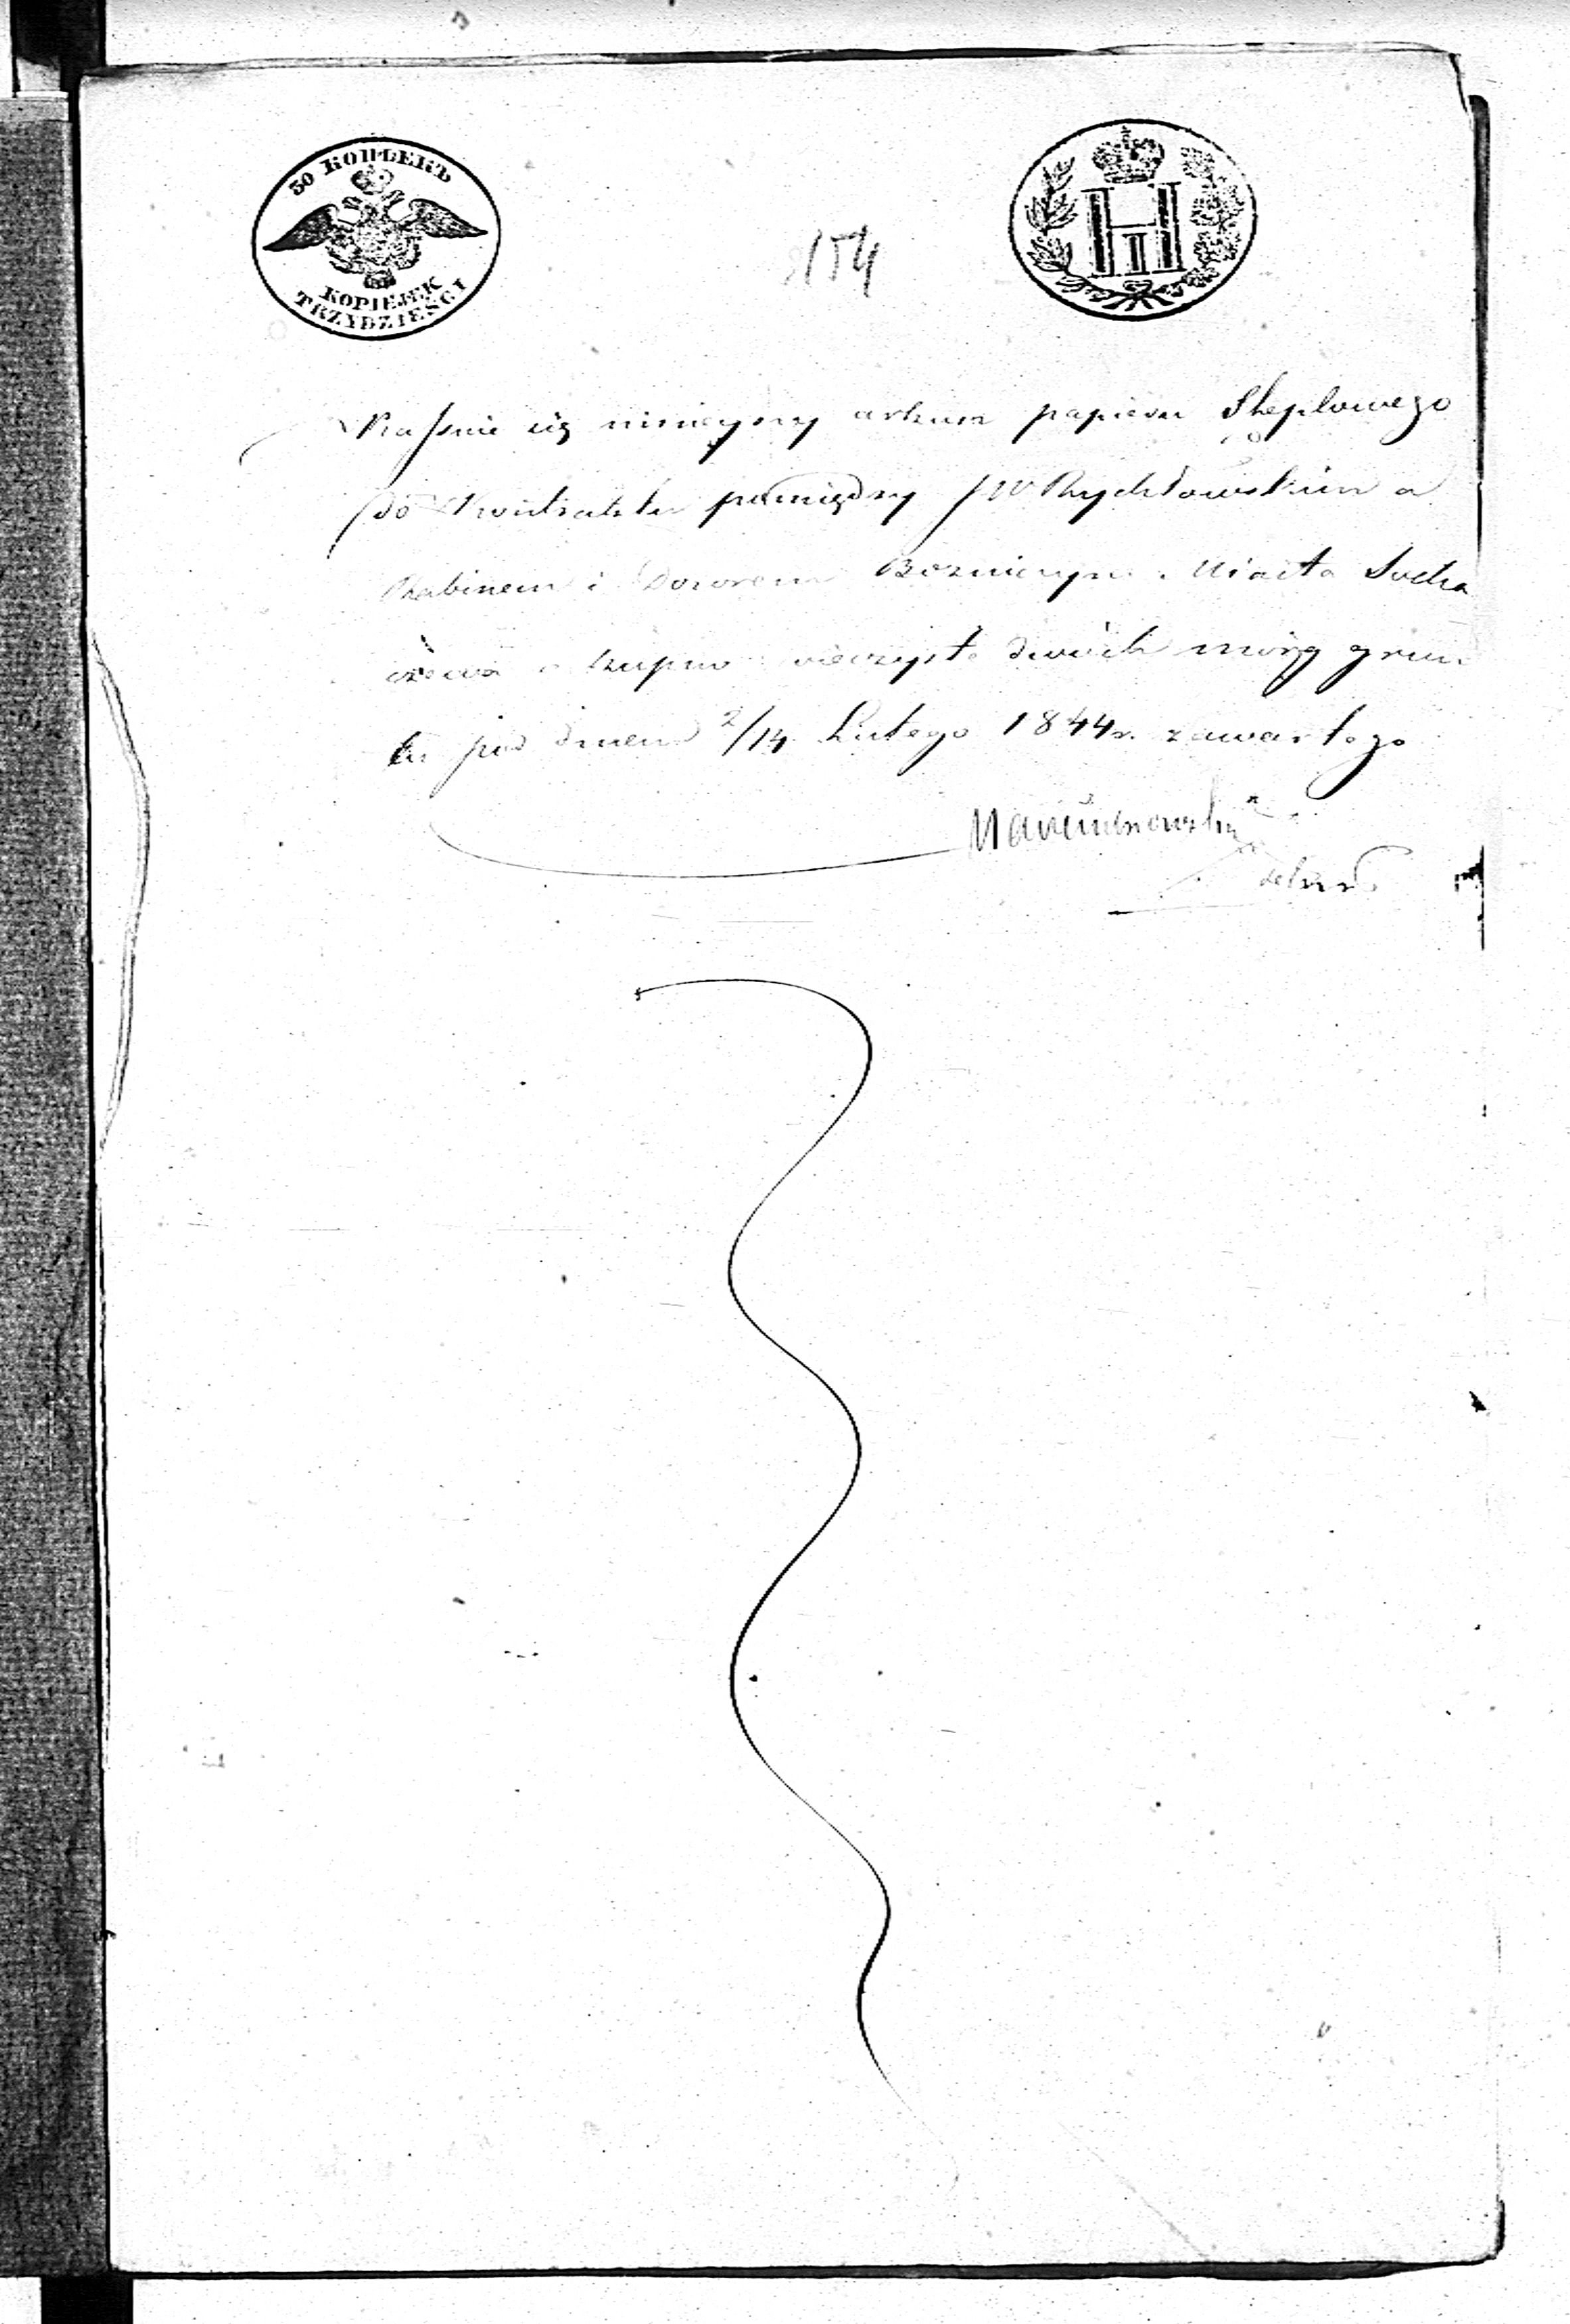 30 КОПѢЕКЪ
KOPIEJEK
TRZYDZIEŚCI
154
HI
Kassuie się ninieyszy arkusz papieru Steplowego
do Kontraktu pomiędzy JW Rychłowskim a
Rabinem i Dozorem Bożniczym Miasta Socha
czewa o kupno wieczyste dwóch mórg grun
tu pod dniem 2/14 Lutego 1844 r. zawartego